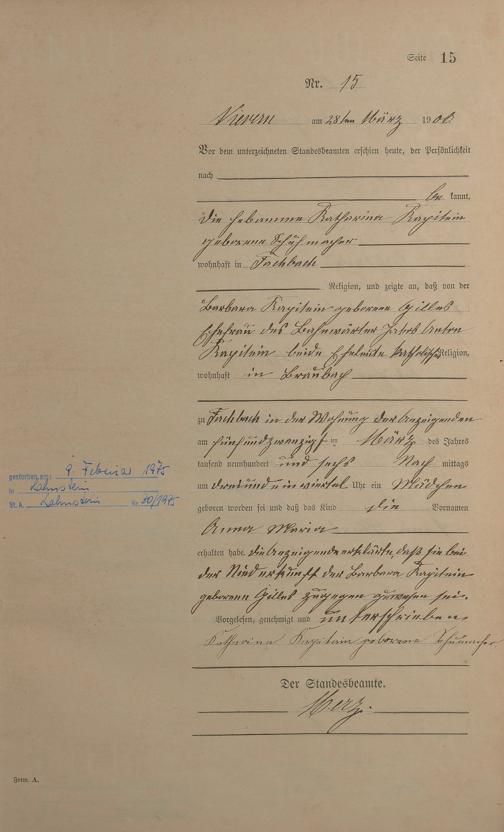 Seite 15
Nr. 15
Nievern am 28ten März 1906
Vor dem unterzeichneten Standesbeamten erschien heute, der Persönlichkeit
nach
be kannt,
die Hebamme Katharina Kapitein
geborene Schuhmacher
wohnhaft in Fachbach
Religion, und zeigte an, daß von der
Barbara Kapitein geborene Gilles
Ehefrau des Bahnwärter Jakob Anton
Kapitein beide Eheleute katholischer Religion,
wohnhaft in Braubach
zu Fachbach in der Wohnung der Anzeigenden
am fünfundzwanzigsten März des Jahres
tausend neunhundert und sechs Nach mittags
um dreiundeinviertel Uhr ein Mädchen
geboren worden sei und daß das Kind die Vornamen
Anna Maria
erhalten habe. Die Anzeigende erklärte, daß sie bei
der Niederkunft der Barbara Kapitein
geborene Gilles zugegen gewesen sei.
Vorgelesen, genehmigt und unterschrieben
Katharina Kapitein geborene Schumacher
Der Standesbeamte.
Merz.
gestorben am: 9. Februar 1975
in Lahnstein
St. A. Lahnstein Nr. 30/1975
Form. A.